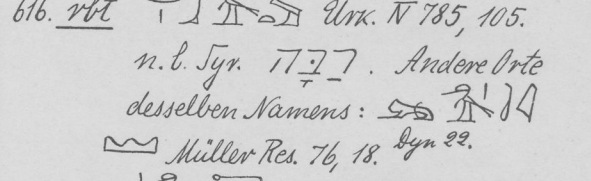 616. rbt Urk. IV 785, 105.
n. l. Syr. . Andere Orte
desselben Namens:
Müller Res. 76, 18. Dyn 22.